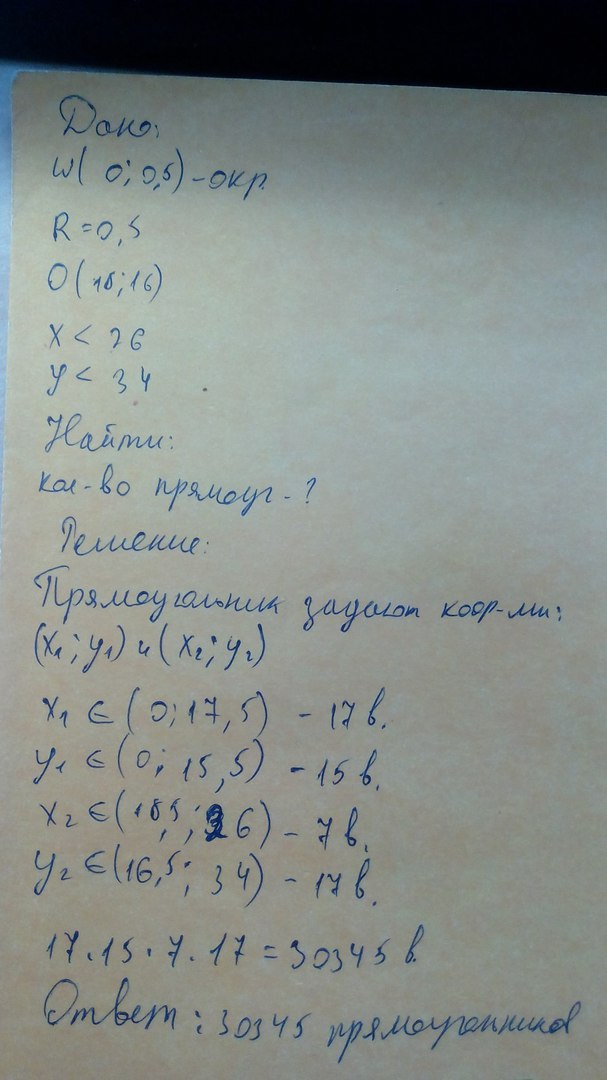 Дано:
W( 0; 0,5) - окр.
R = 0,5
O(18;16)
X < 26
y < 34
Найти:
кол-во прямоуг - ?
Решение:
Прямоугольник задают коор-ми:
(x₁; y₁) и (x₂; y₂)
x₁ ∈ (0; 17,5) - 17 в.
y₁ ∈ (0; 15,5) - 15 в.
x₂ ∈ (18,5; 26) - 7 в.
y₂ ∈ (16,5; 34) - 17 в.
17.15.7.17 = 30345 в.
Ответ: 30345 прямоугольников